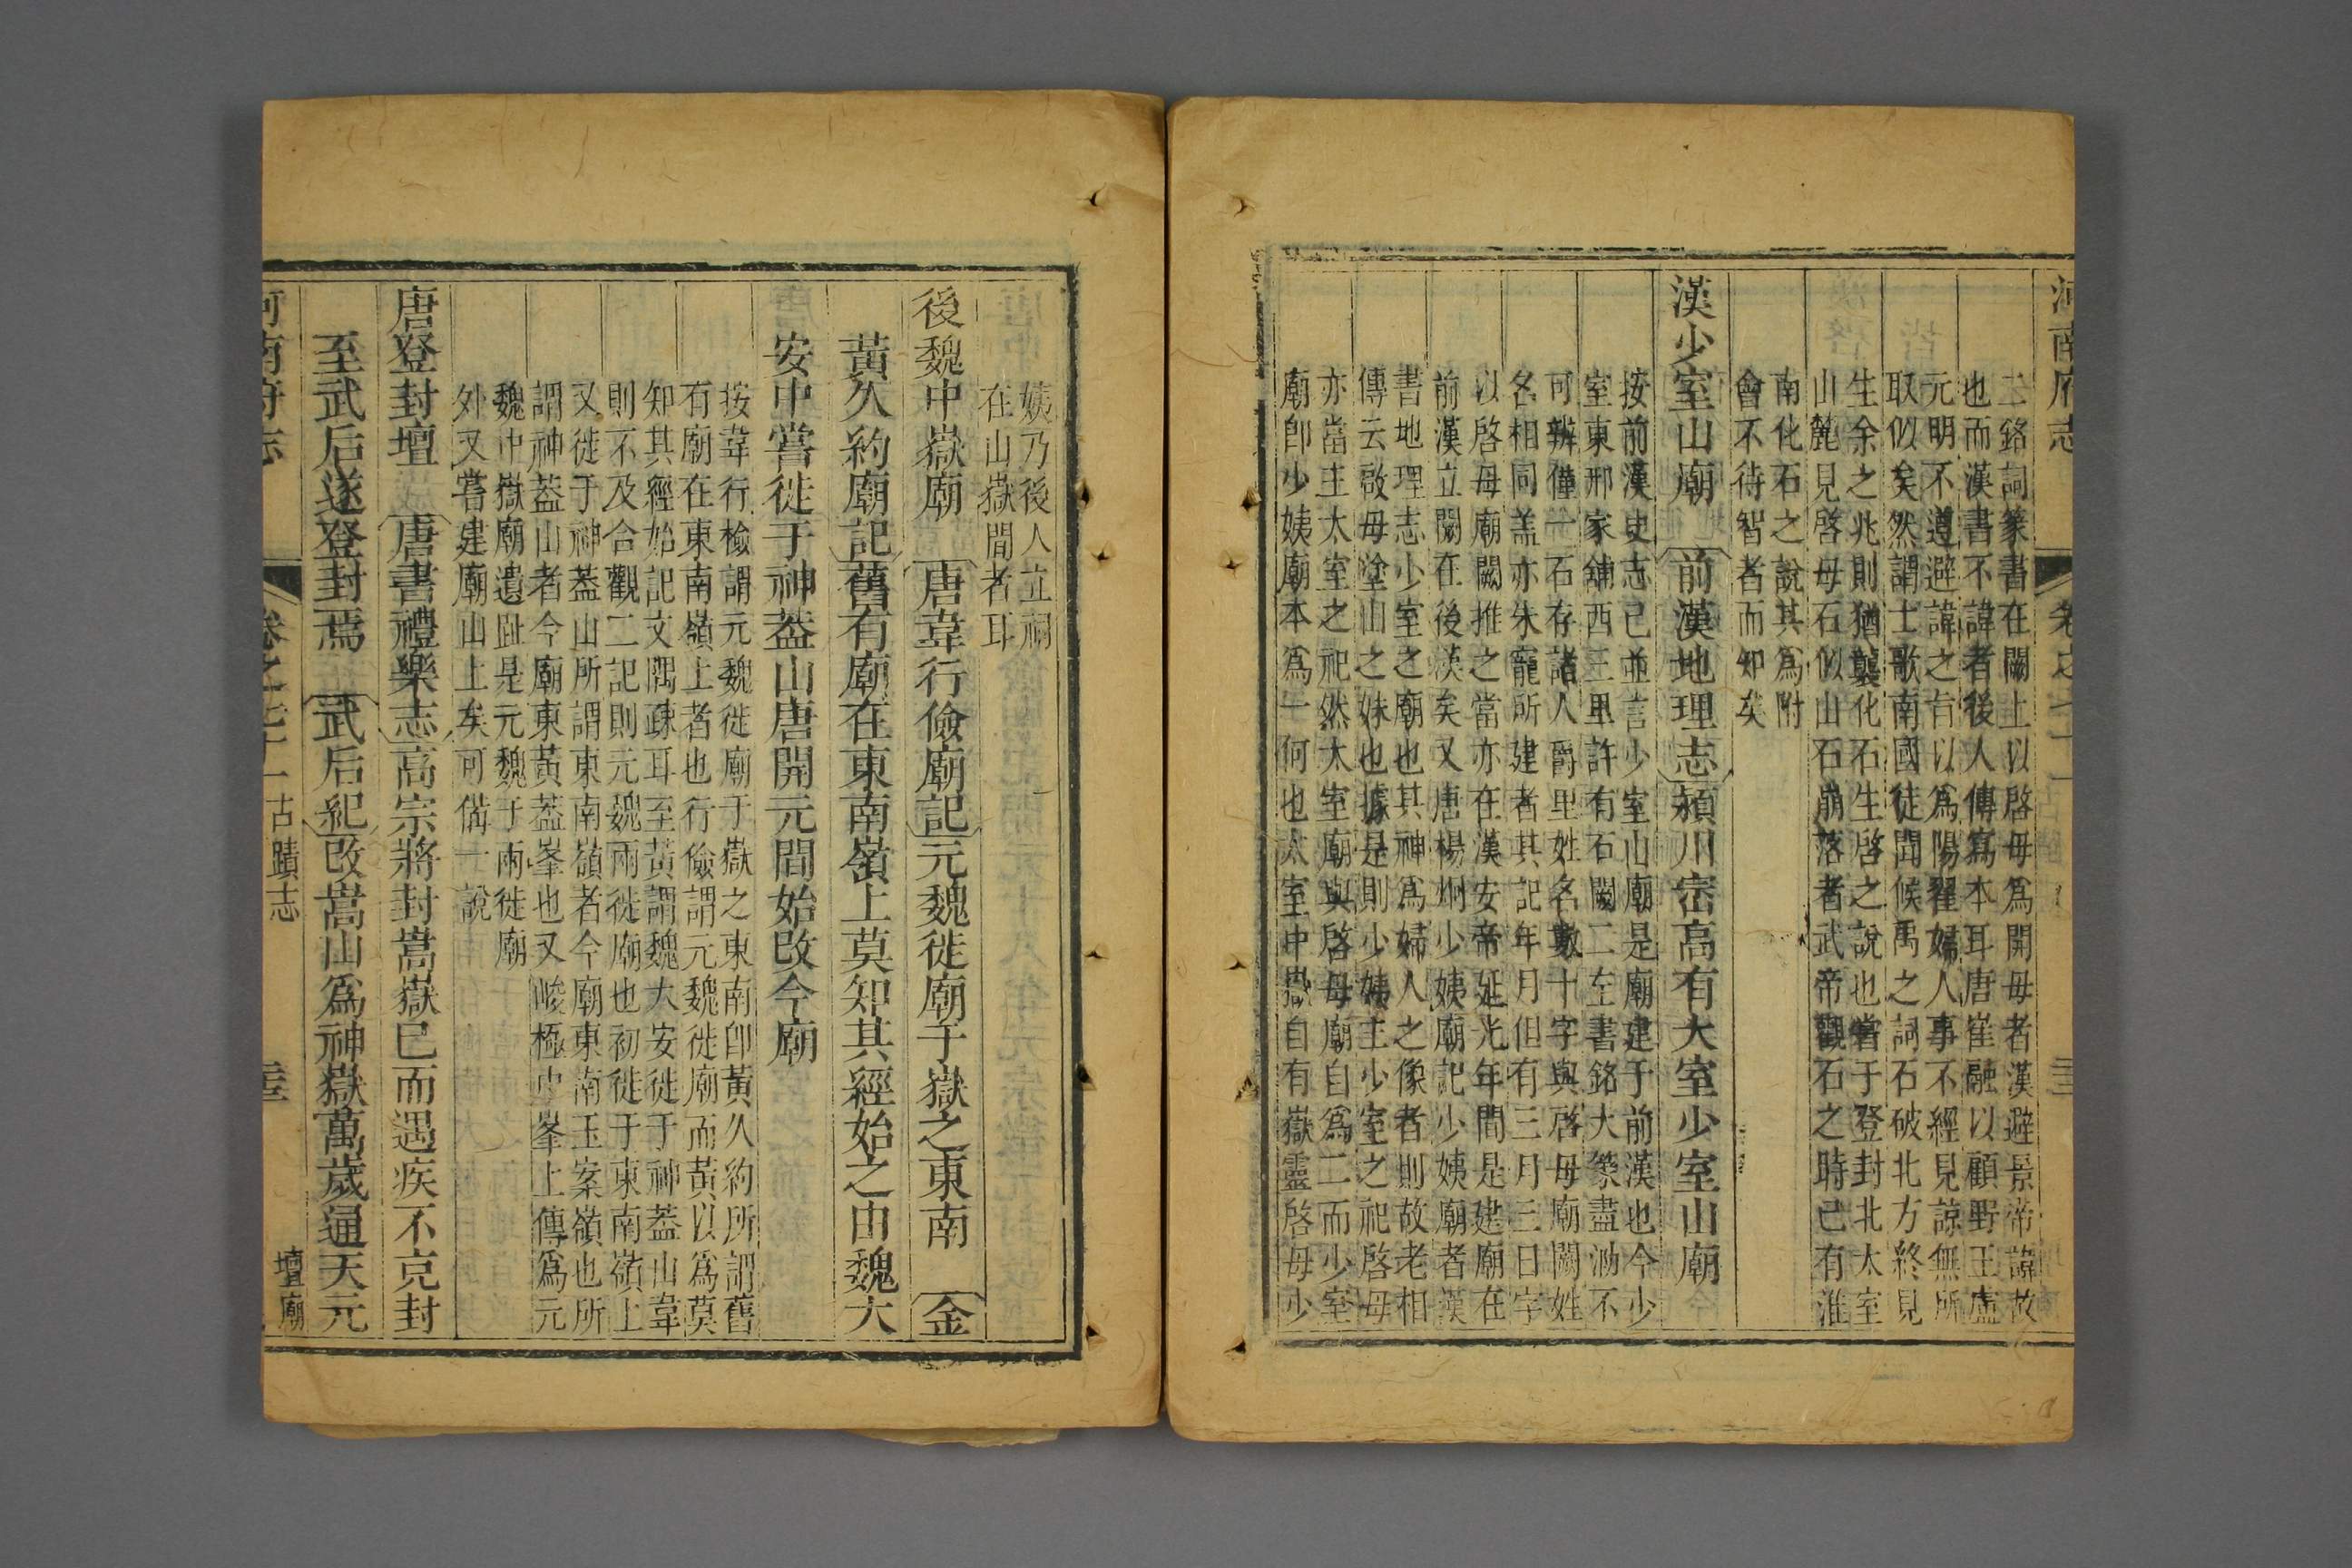 河南府志 卷之七十一
二銘詞篆書在闕上以啓母爲開母者漢避景帝諱故
也而漢書不諱者後人傳寫本耳唐崔融以顧野王盧
元明不遵避諱之旨以爲陽翟婦人事不經見諒無所
取似矣然謂士歌南國徒聞候禹之詞石破北方終見
生余之兆則猶襲化石生啓之說也嘗于登封北太室
山麓見啓母石似山石崩落者武帝觀石之時已有淮
南化石之說其爲附
會不待智者而知矣
漢少室山廟 前漢地理志潁川密高有大室少室山廟
按前漢史志已並言少室山廟是廟建于前漢也今少
室東邢家舖西三里許有石闕二左書銘大篆盡泐不
可辨僅一石存諸人爵里姓名數十字與啓母廟闕姓
名相同盖亦朱寵所建者其記年月但有三月三日字
以啓母廟闕推之當亦在漢安帝延光年間是建廟在
前漢立闕在後漢矣又唐楊炯少姨廟記少姨廟者漢
書地理志少室之廟也其神爲婦人之像者則故老相
傳云啟母塗山之妹也據是則少姨主少室之祀啓母
亦當主太室之祀然太室廟與啓母廟自爲二而少室
廟卽少姨廟本爲一何也太室中嶽自有嶽靈啓母少
姨乃後人立祠
在山嶽間者耳
後魏中嶽廟 唐韋行儉廟記元魏徙廟于嶽之東南 金
黃久約廟記舊有廟在東南嶺上莫知其經始之由魏大
安中嘗徙于神葢山唐開元間始改今廟
按韋行檢謂元魏徙廟于嶽之東南卽黃久約所謂舊
有廟在東南嶺上者也行儉謂元魏徙廟而黃以爲莫
知其經始記文隅疎耳至黃謂魏大安徙于神葢山韋
則不及合觀二記則元魏兩徙廟也初徙于東南嶺上
又徙于神葢山所謂東南嶺者今廟東南玉案嶺也所
謂神葢山者今廟東黃葢峯也又峻極中峯上傳爲元
魏中嶽廟遺趾是元魏于兩徙廟
外又嘗建廟山上矣可備一說
唐登封壇 唐書禮樂志高宗將封嵩嶽已而遇疾不克封
至武后遂登封焉 武后紀改嵩山爲神嶽萬歲通天元
河南府志 卷之七十一 古蹟志 壇廟